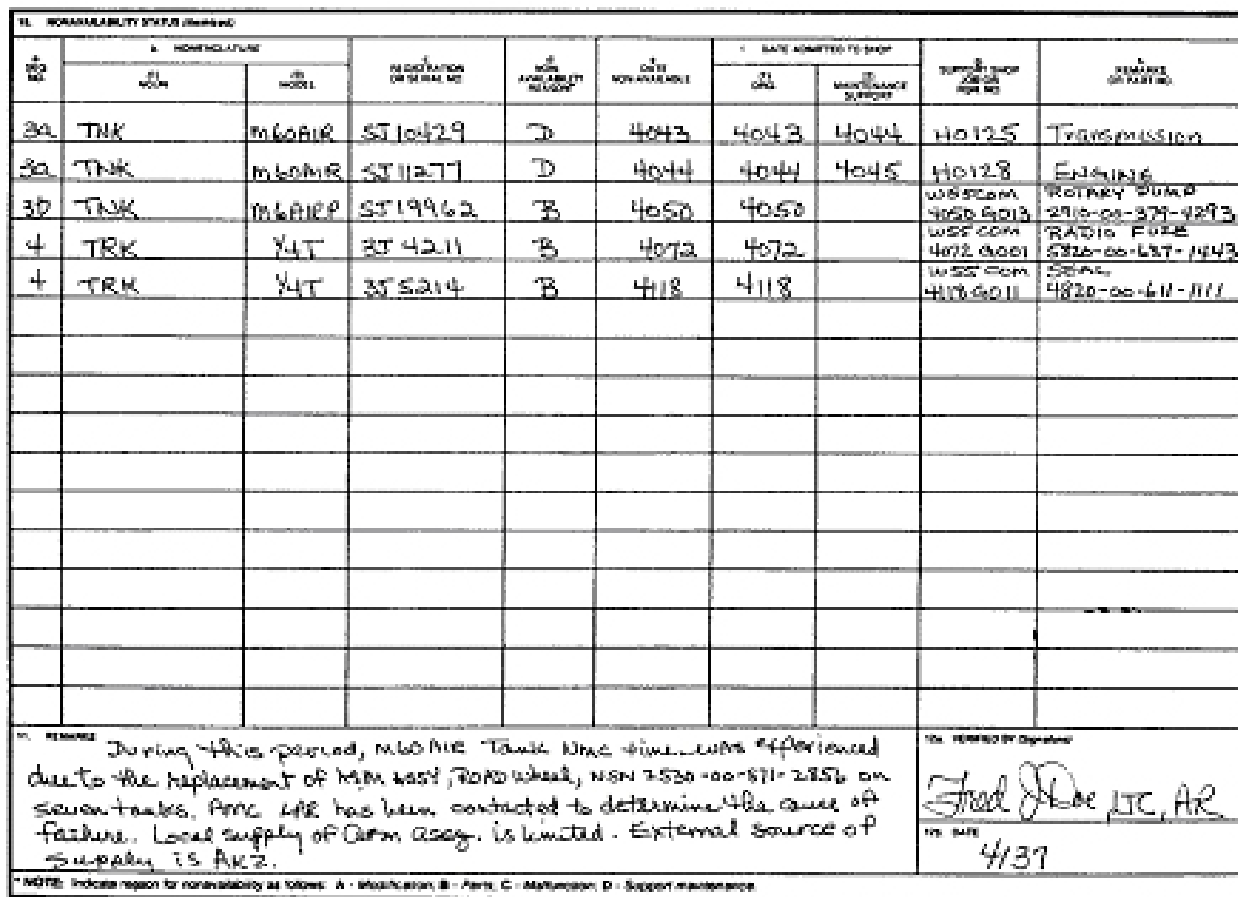 NONAVAILABILITY STATUS
NOMENCLATURE
DATE ADMITTED TO SHOP
SEQ NO.
NOUN
MODEL
REGISTRATION OR SERIAL NO.
NON AVAILABILITY REASON*
DATE NON-AVAILABLE
ORG
MAINTENANCE SUPPORT
SUPPORT SHOP
REMARKS OR PART NO.
3a TNK M60AIR SJ10429 D 4043 4043 4044 H0125 Transmission
3a TNK M60AIR SJ11277 D 4044 4044 4045 H0128 ENGINE
3b TNK SJ19962 B 4050 4050 4050 G013 ROTARY PUMP 2910-00-379-4293
4 TRK 1/4T 3J 4211 B 4072 4072 4072 G001 RADIO FUZE
4 TRK 1/4T 3J5214 B 4118 4118 4118 G011 4820-00-611-1111
REMARKS
During this period, M60AIR Tank NMC time was experienced
due to the replacement of ASSY, ROAD wheel, NSN 2530-00-871-2856 on
seven tanks. AMC LAR has been contacted to determine the cause of
failure. Local supply of is limited. External source of
supply is AKZ.
VERIFIED BY (Signature)
Fred J Doe, LTC, AR
DATE
4137
*NOTE: Indicate reason for nonavailability as follows: A - Modification; B - Parts; C - Malfunction; D - Support maintenance.